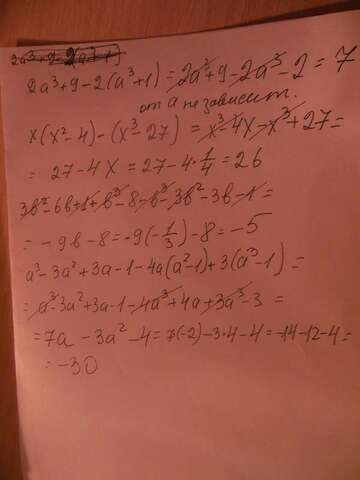 2a³+9-2(a³+1)
2a³+9-2(a³+1) = 2a³+9-2a³-2 = 7
от a не зависит.
x(x²-4)-(x³-27) = x³-4x-x³+27=
= 27-4x = 27-4·1/4 = 26
3b²-6b+1+b³-8-b³-3b²-3b-1=
= -9b-8=-9(-1/3)-8=-5
a³-3a²+3a-1-4a(a²-1)+3(a³-1)=
= a³-3a²+3a-1-4a³+4a+3a³-3 =
=7a -3a²-4=7(-2)-3·4-4=-14-12-4=
= -30